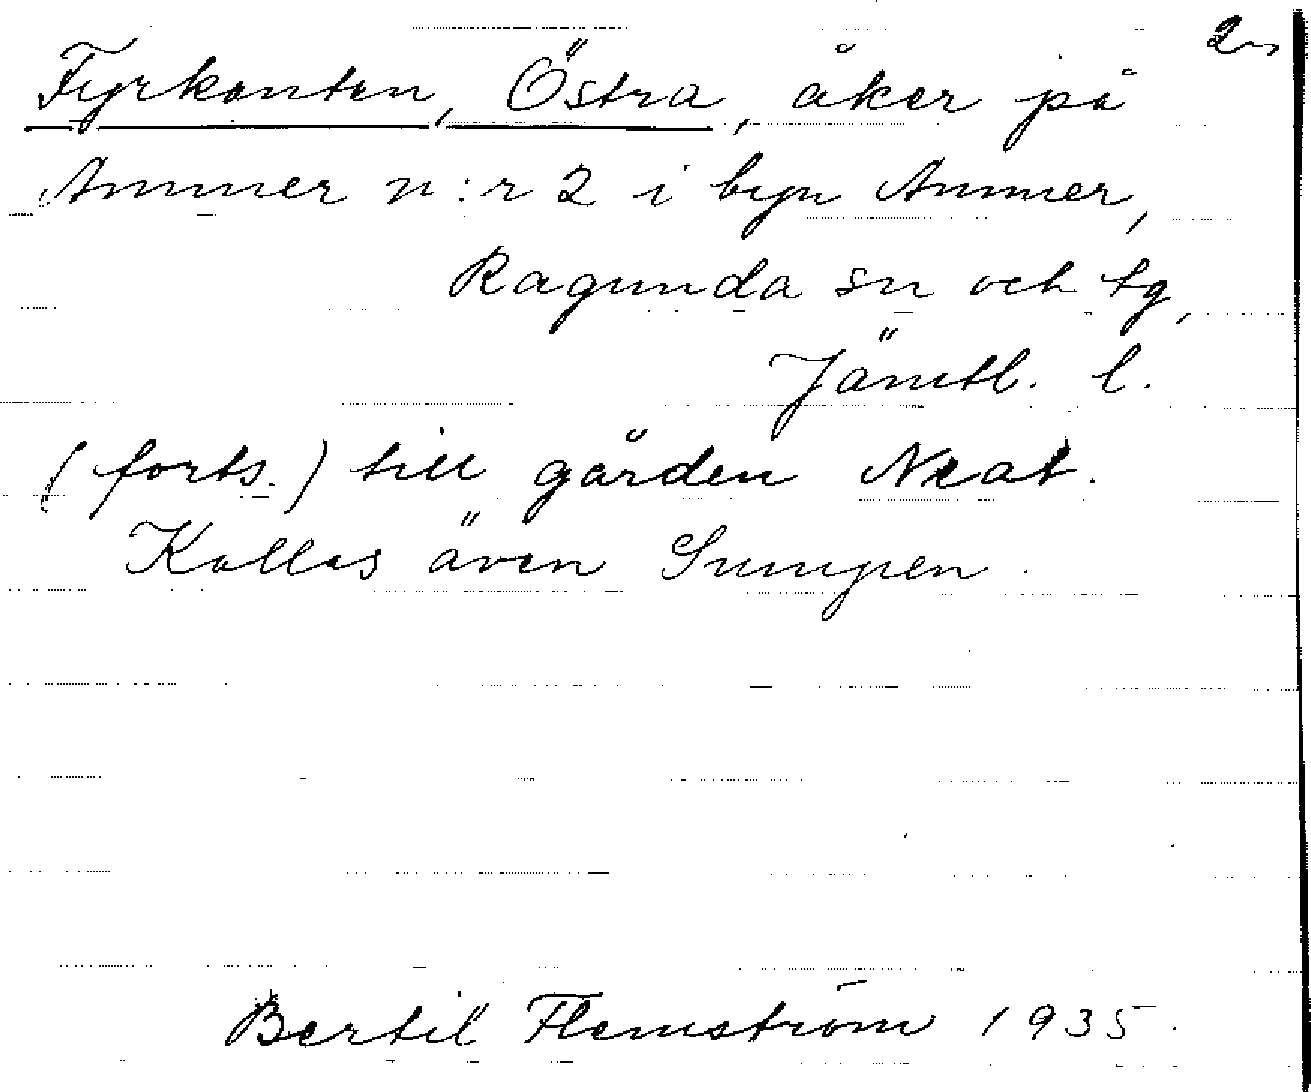 2
Fyrkanten, Östra, åker på
Ammer n:r 2 i byn Ammer,
Ragunda sn och tg,
Jämtl. l.
(forts.) till gården Neat.
Kallas även Sumpen.
Bertil Flemström 1935.